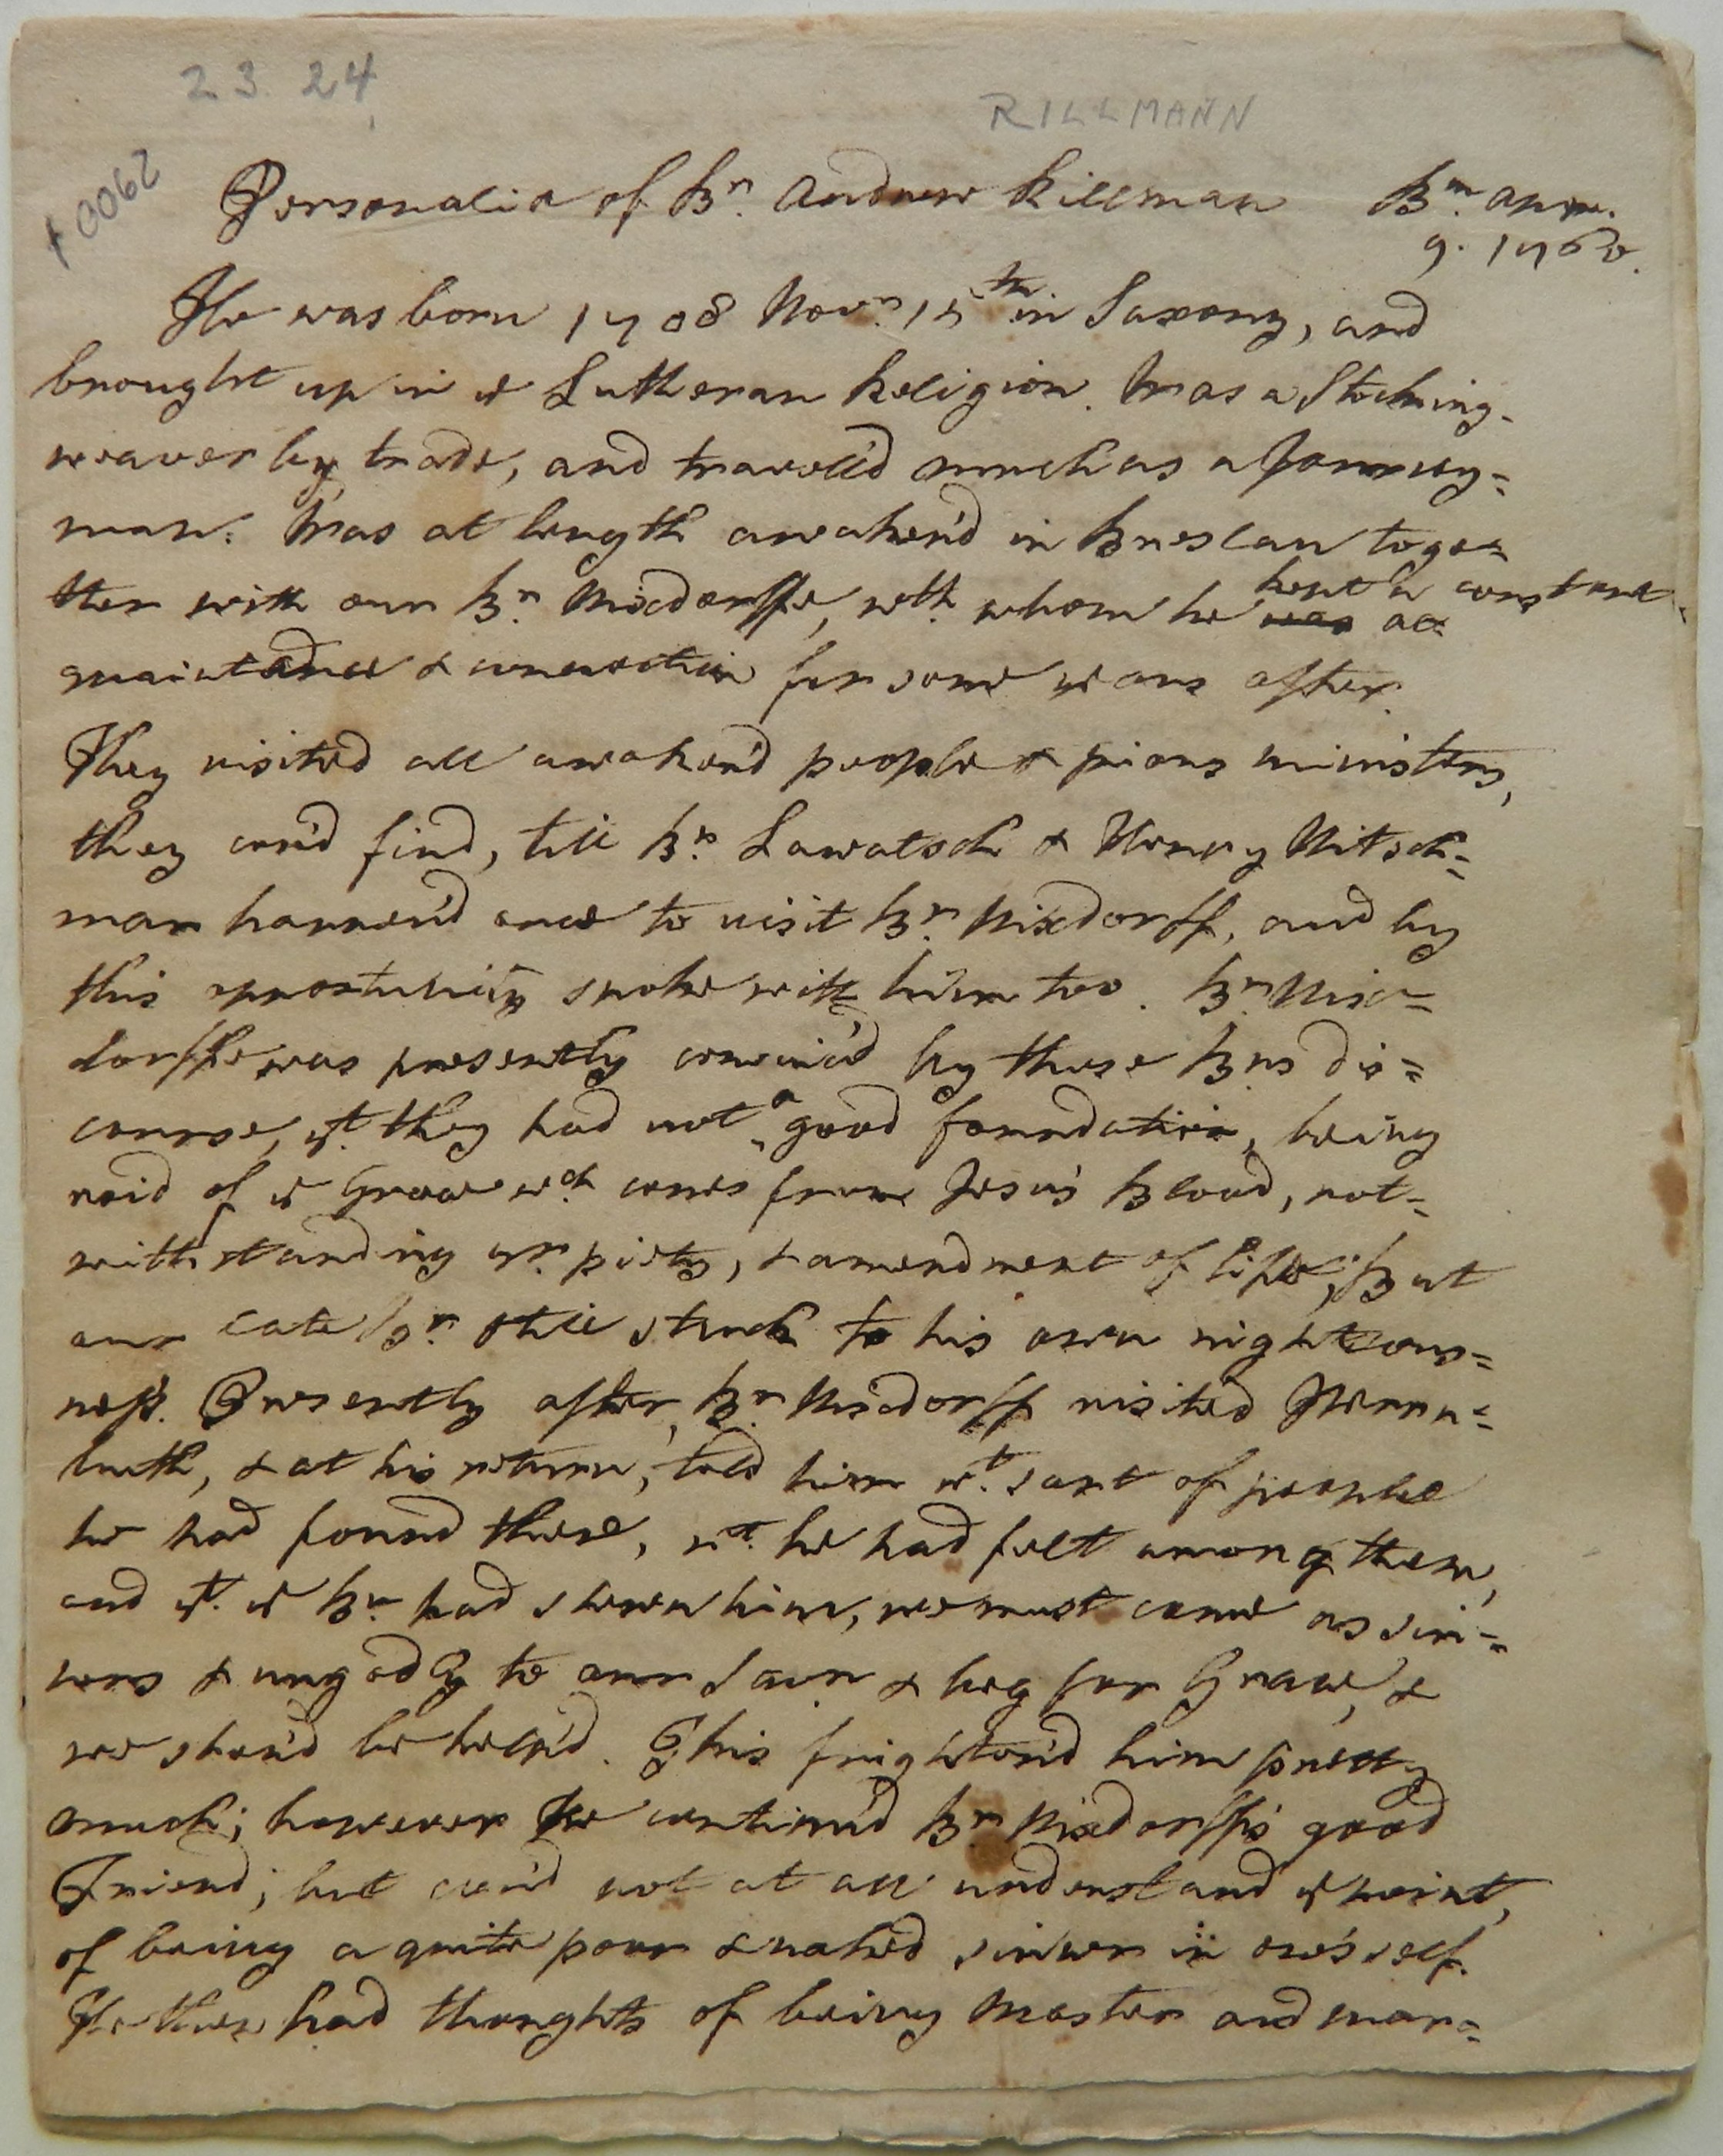 23. 24
RILLMANN
f 0062
Personalia of Br. Andrew Rillman
9. 1760.
He was born 1708 Novr. 15th in Saxony, and
brought up in ye Lutheran Religion. Was a Stocking-
weaver by trade, and travell'd much as a Journey=
man. Was at length awaken'd in Breslau toge=
ther with our Br. Nixdorffe, wth. whom he was kept a constant ac=
quaintance & connection for some years after.
They visited all awaken'd people & pious ministers,
they cou'd find, till Br. Lawatsch & Henry Nitsch=
man happen'd once to visit Br. Nixdorff, and by
this opportunity spoke with him too. Br. Nix=
dorffe was presently convinc'd by these Brn dis=
course, yt. they had not a good foundation, being
void of ye Grace wch comes from Jesu's Blood, not=
withstanding yr. piety, & amendment of life; But
our late Br. still stuck to his own righteous=
ness. Presently after, Br. Nixdorff visited Herrn=
huth, & at his return, told him wt. sort of people
he had found there, wt. he had felt among them,
and yt. ye Brn had shewn him, we must come as sin=
ners & ungodly to our Savr. & beg for Grace, &
we shou'd be help'd. This frighten'd him pretty
much; however he continu'd Br. Nixdorff's good
Friend; but cou'd not at all understand ye point,
of being a quite poor & naked sinner in one's self.
He then had thoughts of being Master and mar=